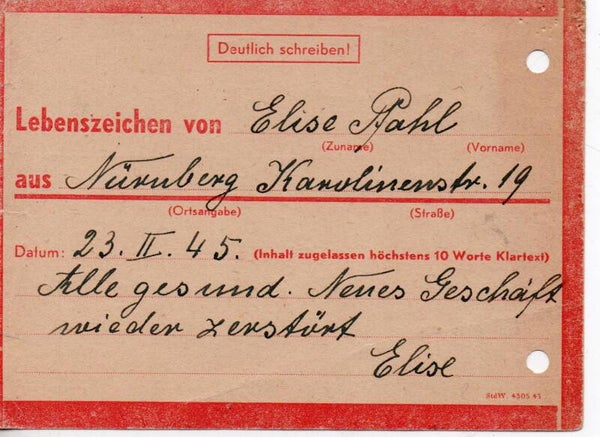 Deutlich schreiben!
Lebenszeichen von Elise Pahl
(Zuname) (Vorname)
aus Nürnberg Karolinenstr. 19
(Ortsangabe) (Straße)
Datum: 23. II. 45. (Inhalt zugelassen höchstens 10 Worte Klartext)
Alle gesund. Neues Geschäft
wieder zerstört
Elise
StdW. 4505 43